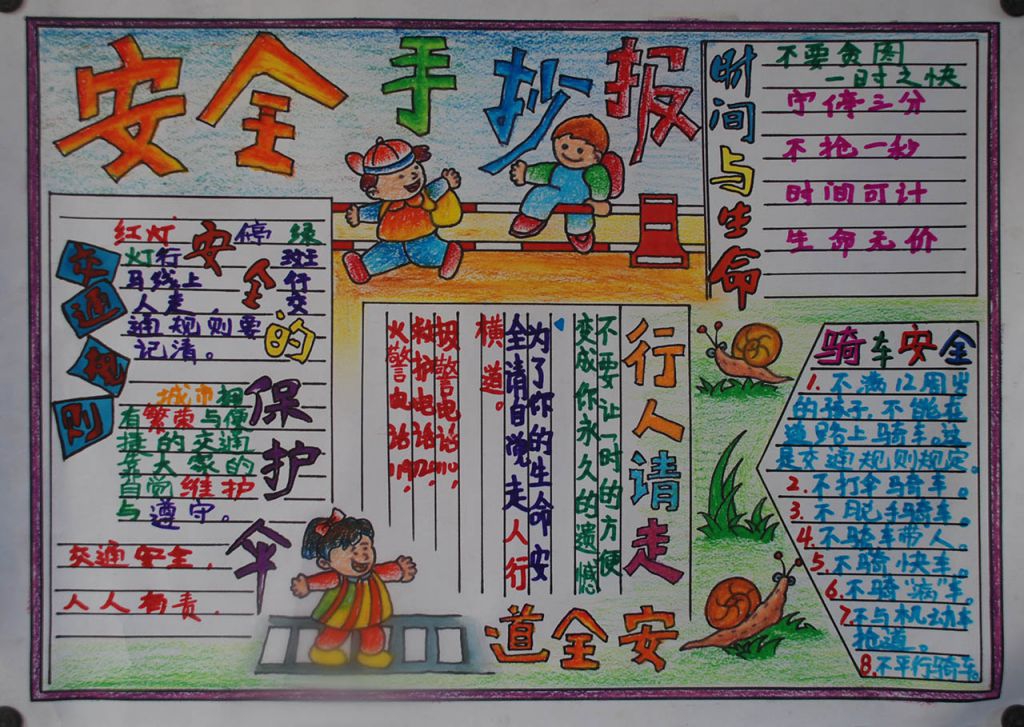 安全手抄报
时间与生命
不要贪图
一时之快
宁停三分
不抢一秒
时间可计
生命无价
交通规则
安全的保护伞
红灯停绿
灯行班
马线上行
人走,交
通规则要
记清。
城市拥
有繁荣与便
捷的交通
靠大家的
自觉维护
与遵守。
交通安全,
人人有责。
行人请走安全道
不要让一时的方便
变成你永久的遗憾
为了你的生命安
全请自觉走人行
横道。
报警电话110,
救护电话120,
火警电话119,
骑车安全
1.不满12周岁
的孩子,不能在
道路上骑车。这
是交通规则规定。
2.不打伞骑车。
3.不脱手骑车。
4.不骑车带人。
5.不骑快车。
6.不骑“病”车。
7.不与机动车
抢道。
8.不平行骑车。